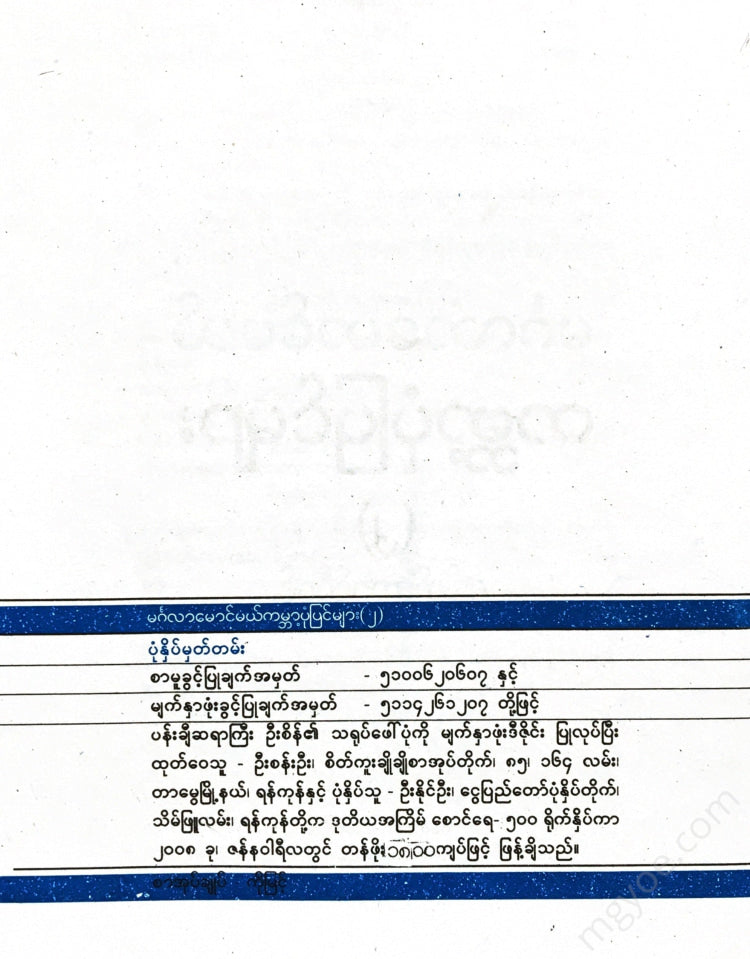 မင်္ဂလာမောင်မယ်ကမ္ဘာပုံပြင်များ(၂)
ပုံနှိပ်မှတ်တမ်း
စာမူခွင့်ပြုချက်အမှတ် - ၅၁၀၀၆၂၀၆၀၇ နှင့်
မျက်နှာဖုံးခွင့်ပြုချက်အမှတ် - ၅၁၁၄၂၆၁၂၀၇ တို့ဖြင့်
ပန်းချီဆရာကြီး ဦးစိန်၏ သရုပ်ဖော်ပုံကို မျက်နှာဖုံးဒီဇိုင်း ပြုလုပ်ပြီး
ထုတ်ဝေသူ - ဦးစန်းဦး၊ စိတ်ကူးချိုချိုစာအုပ်တိုက်၊ ၈၅၊ ၁၆၄ လမ်း၊
တာမွေမြို့နယ်၊ ရန်ကုန်နှင့် ပုံနှိပ်သူ - ဦးနိုင်ဦး၊ ငွေပြည်တော်ပုံနှိပ်တိုက်၊
သိမ်ဖြူလမ်း၊ ရန်ကုန်တို့က ဒုတိယအကြိမ် စောင်ရေ- ၅၀၀ ရိုက်နှိပ်ကာ
၂၀၀၈ ခု၊ ဇန်နဝါရီလတွင် တန်ဖိုး၁၈၀၀ကျပ်ဖြင့် ဖြန့်ချိသည်။
စာအုပ်ချုပ် ကိုမြင့်
mgyoe.com